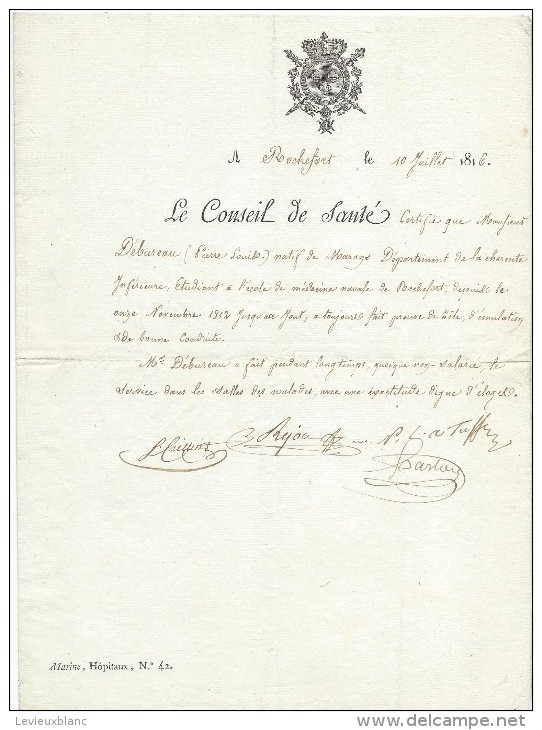 A Rochefort le 10 Juillet 1816.
Le Conseil de Santé Certifie que Monsieur
Débureau (Pierre Louis.) natif de Marans Département de la charente
Inférieure, Etudiant à l'école de médecine navale de Rochefort, depuis le
onze Novembre 1812 Jusqu'au Jour, a toujours fait preuve de Zèle, d'émulation
& de bonne Conduite.
Mr. Débureau a fait pendant longtemps, quoique non-salarié, le
service dans les salles des malades, avec une exactitude digne d'éloges.
Marine, Hôpitaux, N.° 42.
Levieuxblanc
delcampe.net